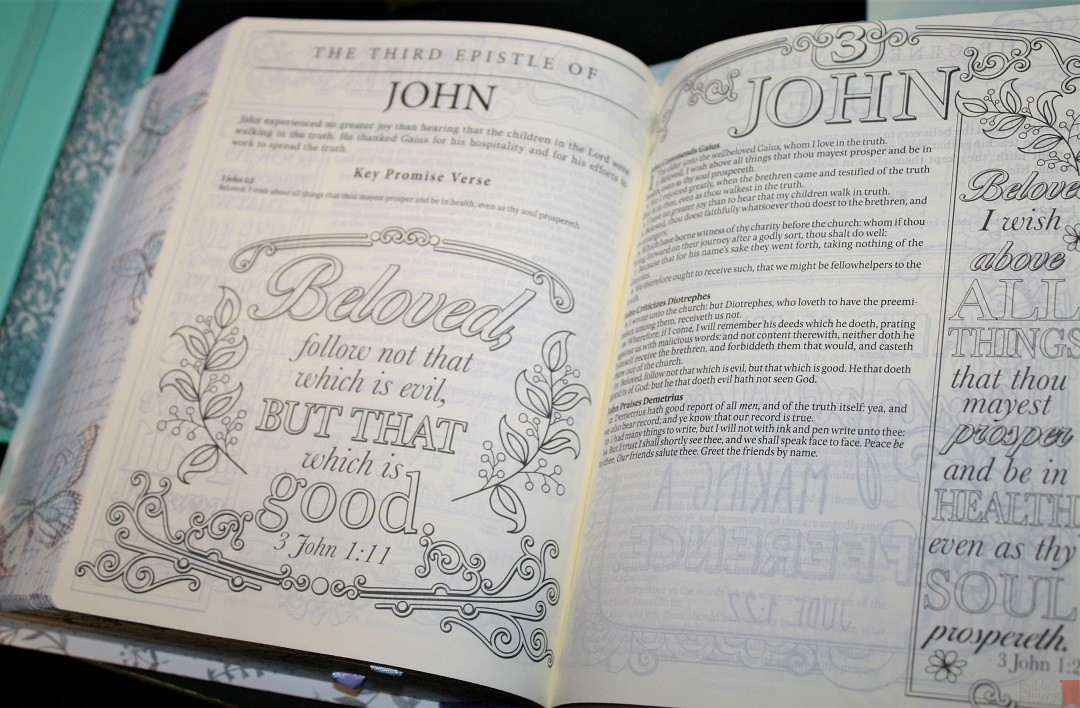 THE THIRD EPISTLE OF
JOHN
John experienced no greater joy than hearing that the children in the Lord were
walking in the truth. He thanked Gaius for his hospitality and for his efforts to
work to spread the truth.
Key Promise Verse
3 John 1:2
Beloved, I wish above all things that thou mayest prosper and be in health, even as thy soul prospereth.
Beloved,
follow not that
which is evil,
BUT THAT
which is
good.
3 John 1:11
3
JOHN
Commends Gaius
unto the wellbeloved Gaius, whom I love in the truth.
Beloved, I wish above all things that thou mayest prosper and be in
even as thy soul prospereth.
rejoiced greatly, when the brethren came and testified of the truth
is in thee, even as thou walkest in the truth.
have no greater joy than to hear that my children walk in truth.
Beloved, thou doest faithfully whatsoever thou doest to the brethren, and
strangers;
which have borne witness of thy charity before the church: whom if thou
forward on their journey after a godly sort, thou shalt do well:
Because that for his name's sake they went forth, taking nothing of the
We therefore ought to receive such, that we might be fellowhelpers to the
John Criticizes Diotrephes
I wrote unto the church: but Diotrephes, who loveth to have the preemi-
among them, receiveth us not.
Wherefore, if I come, I will remember his deeds which he doeth, prating
against us with malicious words: and not content therewith, neither doth he
himself receive the brethren, and forbiddeth them that would, and casteth
out of the church.
Beloved, follow not that which is evil, but that which is good. He that doeth
good is of God: but he that doeth evil hath not seen God.
John Praises Demetrius
Demetrius hath good report of all men, and of the truth itself: yea, and
we also bear record; and ye know that our record is true.
I had many things to write, but I will not with ink and pen write unto thee:
But I trust I shall shortly see thee, and we shall speak face to face. Peace be
to thee. Our friends salute thee. Greet the friends by name.
Belove
I wish
above
ALL
THINGS
that thou
mayest
prosper
and be in
HEALTH
even as thy
SOUL
prospereth.
3 John 1:2
MAKING A
DIFFERENCE
JUDE 1:22